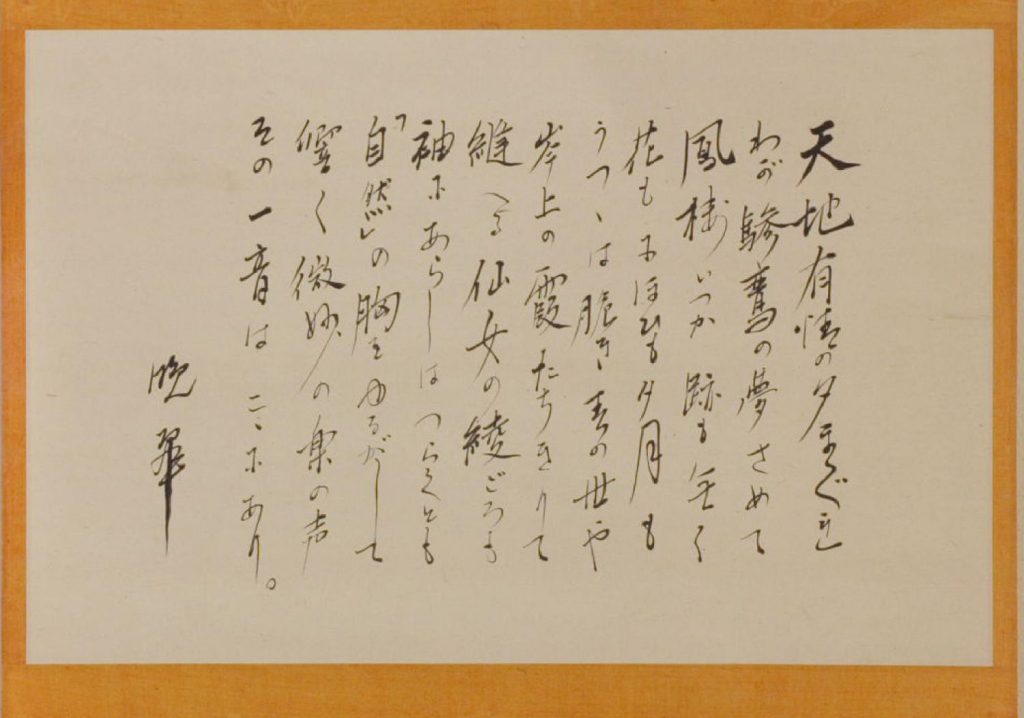 天地有情の夕まぐれ
わが驂鸞の夢さめて
鳳樹いつか跡も無く
花もにほひも夕月も
うつゝは脆き春の世や
岑上の霞たちきりて
縫へる仙女の綾ごろも
袖にあらしはつらくとも
「自然」の胸をゆるがして
響く微妙の楽の声
その一音はこゝにあり。
晩翠